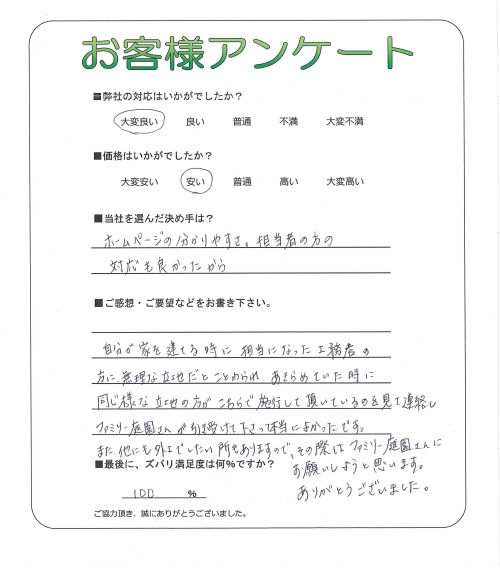 お客様アンケート
■弊社の対応はいかがでしたか？
大変良い　良い　普通　不満　大変不満
■価格はいかがでしたか？
大変安い　安い　普通　高い　大変高い
■当社を選んだ決め手は？
ホームページの分かりやすさ。担当者の方の
対応も良かったから
■ご感想・ご要望などをお書き下さい。
自分が家を建てる時に担当になった工務店の
方に、無理な立地だとことわられ あきらめていた時に
同じ様な立地の方がこちらで施行して頂いているのを見て連絡し
ファミリー庭園さんが引き受けて下さって本当によかったです。
また、他にも外工でしたい所もありますので、その際はファミリー庭園さんに
お願いしようと思います。
ありがとうございました。
■最後に、ズバリ満足度は何％ですか？
100 ％
ご協力頂き、誠にありがとうございました。